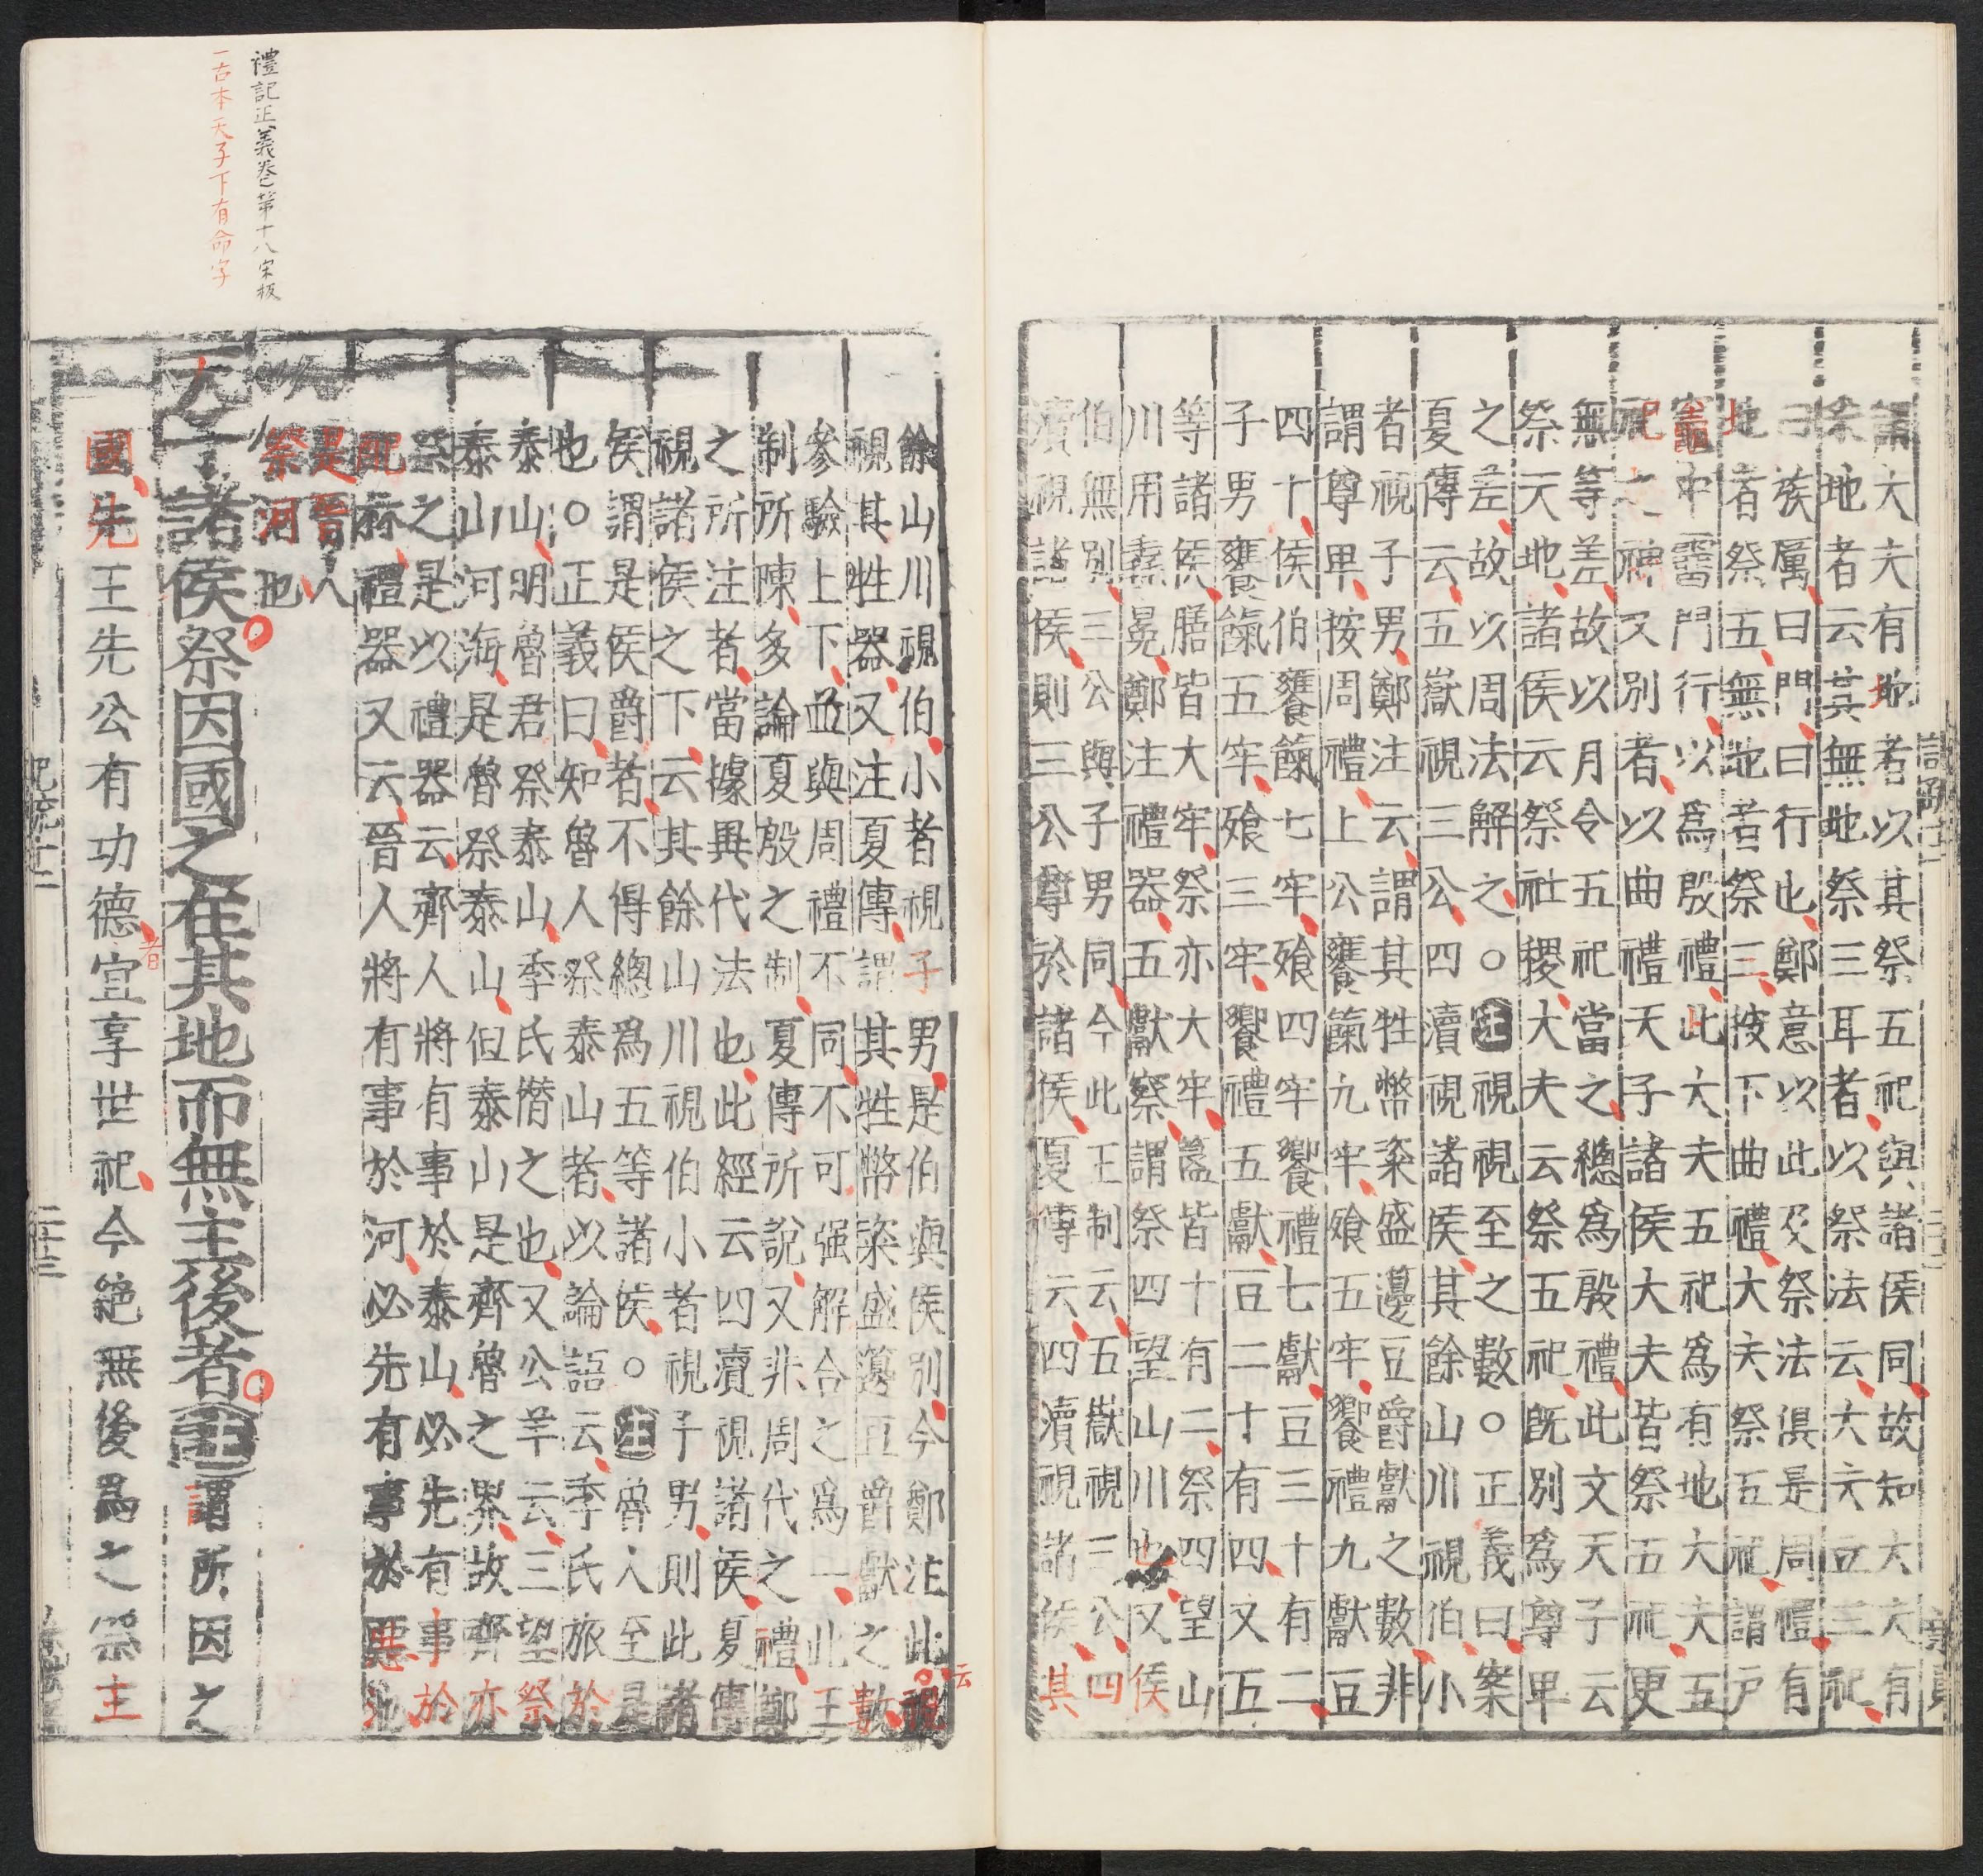 謂大夫有地者以其祭五祀與諸侯同故知大夫有
采地者云其無地祭三耳者以祭法云大夫立三祀
曰族厲曰門曰行也鄭意以此及祭法俱是周禮有
地者祭五無地者祭三按下曲禮大夫祭五祀謂戶
竈中霤門行以爲殷禮此大夫五祀爲有地大夫五
祀之神又別者以曲禮天子諸侯大夫皆祭五祀更
無等差故以月令五祀當之總爲殷禮此文天子云
祭天地諸侯云祭社稷大夫云祭五祀旣別爲尊卑
之差故以周法解之○注視視至之數○正義曰案
夏傳云五嶽視三公四瀆視諸侯其餘山川視伯小
者視子男鄭注云謂其牲幣粢盛籩豆爵獻之數非
謂尊卑按周禮上公饔餼九牢飧五牢饗禮九獻豆
四十侯伯饔餼七牢飧四牢饗禮七獻豆三十有二
子男饔餼五牢飧三牢饗禮五獻豆二十有四又五
等諸侯膳皆大牢祭亦大牢簋皆十有二祭四望山
川用毳冕鄭注禮器五獻察謂祭四望山川也又侯
伯無別三公與子男同今此王制云五嶽視三公四
瀆視諸侯則三公尊於諸侯夏傳云四瀆視諸侯其
餘山川視伯小者視子男是伯與侯別今鄭注此視
云
視其牲器又注夏傳謂其牲幣粢盛籩豆爵獻之數
參驗上下並與周禮不同不可强解合之爲一此王
制所陳多論夏殷之制夏傳所說又非周代之禮鄭
之所注者當據異代法也此經云四瀆視諸侯夏傳
視諸侯之下云其餘山川視伯小者視子男則此諸
侯謂是侯爵者不得總爲五等諸侯○注魯人至是
也○正義曰知魯人祭泰山者以論語云季氏旅於
泰山明魯君祭泰山季氏僭之也又公羊云三望祭
泰山河海是魯祭泰山但泰山是齊魯之界故齊亦
祭之是以禮器云齊人將有事於泰山必先有事於
配林禮器又云晉人將有事於河必先有事於惡池
是晉人
祭河也
天子諸侯祭因國之在其地而無主後者注謂所因之
國先王先公有功德宜享世祀今絕無後爲之祭主
者
禮記正義卷第十八宋板
一古本天子下有命字